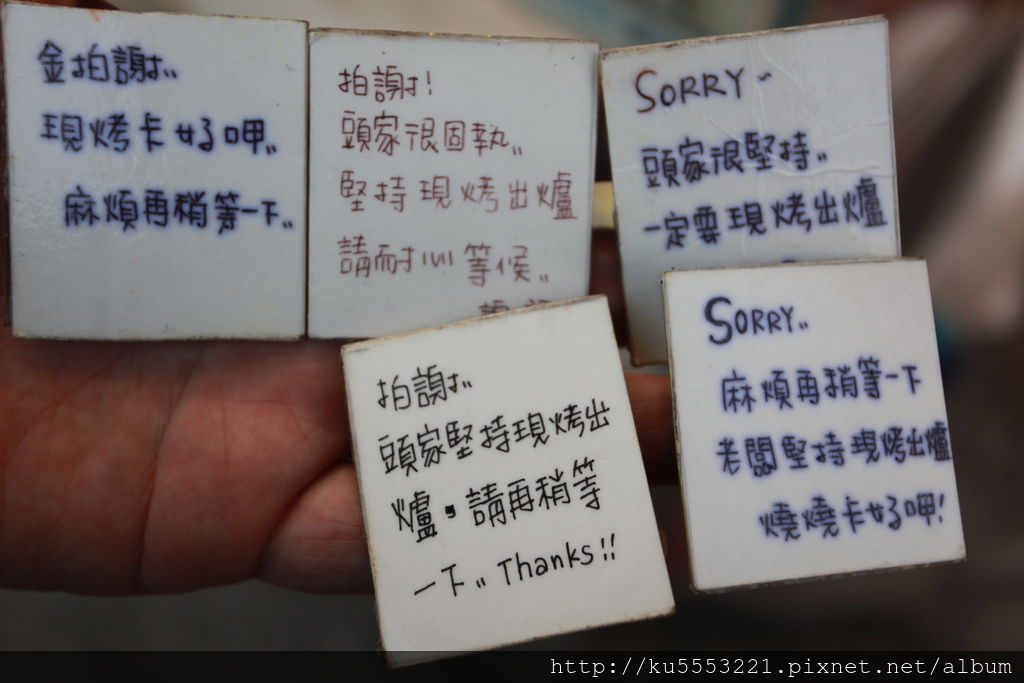 金拍謝..
現烤卡好呷..
麻煩再稍等一下..
拍謝!
頭家很固執..
堅持現烤出爐
請耐心等候..
SORRY~
頭家很堅持..
一定要現烤出爐
拍謝..
頭家堅持現烤出
爐,請再稍等
一下.. Thanks!!
SORRY..
麻煩再稍等一下
老闆堅持現烤出爐
燒燒卡好呷!
http://ku5553221.pixnet.net/album